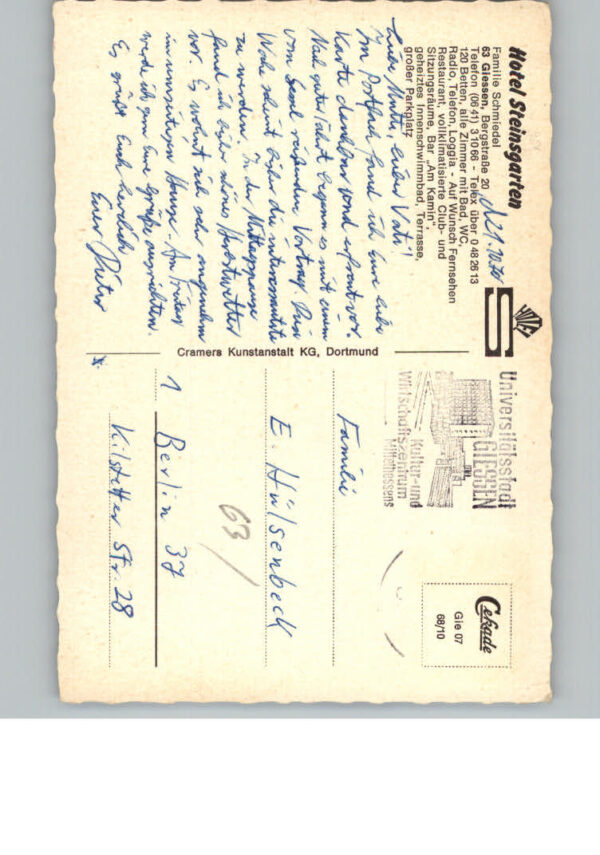 Hotel Steinsgarten
Familie Schmiedel
63 Giessen, Bergstraße 20
Telefon (06 41) 3 10 66 - Telex über 0 48 26 13
120 Betten, alle Zimmer mit Bad, WC,
Radio, Telefon, Loggia - Auf Wunsch Fernsehen
Restaurant, vollklimatisierte Club- und
Sitzungsräume, Bar „Am Kamin",
geheiztes Innenschwimmbad, Terrasse,
großer Parkplatz
d. 21.10.70
Liebe Mutti, lieber Vati!
Im Postfach fand ich Eure liebe
Karte dankbar und erfreut vor.
Nach guter Fahrt begann es mit einem
vom Vortrag. Die
Woche scheint bisher die interessanteste
zu werden. In der Mittagspause
fand ich bisher schönes Herbstwetter
vor. Es wohnt sich sehr angenehm
im umseitigen Hause. Am Freitag
werde ich gern Eure Grüße ausrichten.
Es grüßt Euch herzlich
Euer Dieter
Cramers Kunstanstalt KG, Dortmund
Universitätsstadt
GIESSEN
Kultur- und
Wirtschaftszentrum
Mittelhessens
Cekade
Gie 07
68/10
Familie
E. Hülsenbeck
63
1 Berlin 37
Kilstetter Str. 28